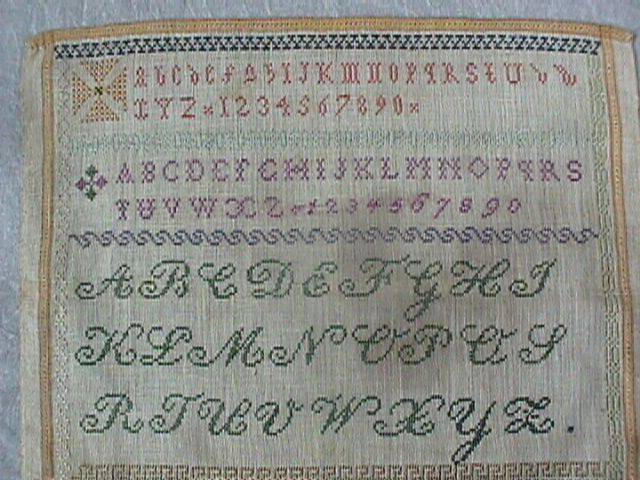 A b C D E F G H I J K M N O P Q R S t U V W
X Y Z * 1 2 3 4 5 6 7 8 9 0 *
A B C D E F G H I J K L M N O P Q R S
T U V W X Z 1 2 3 4 5 6 7 8 9 0
A B C D E F G H I
K L M N O P Q S
R T U V W X Y Z .